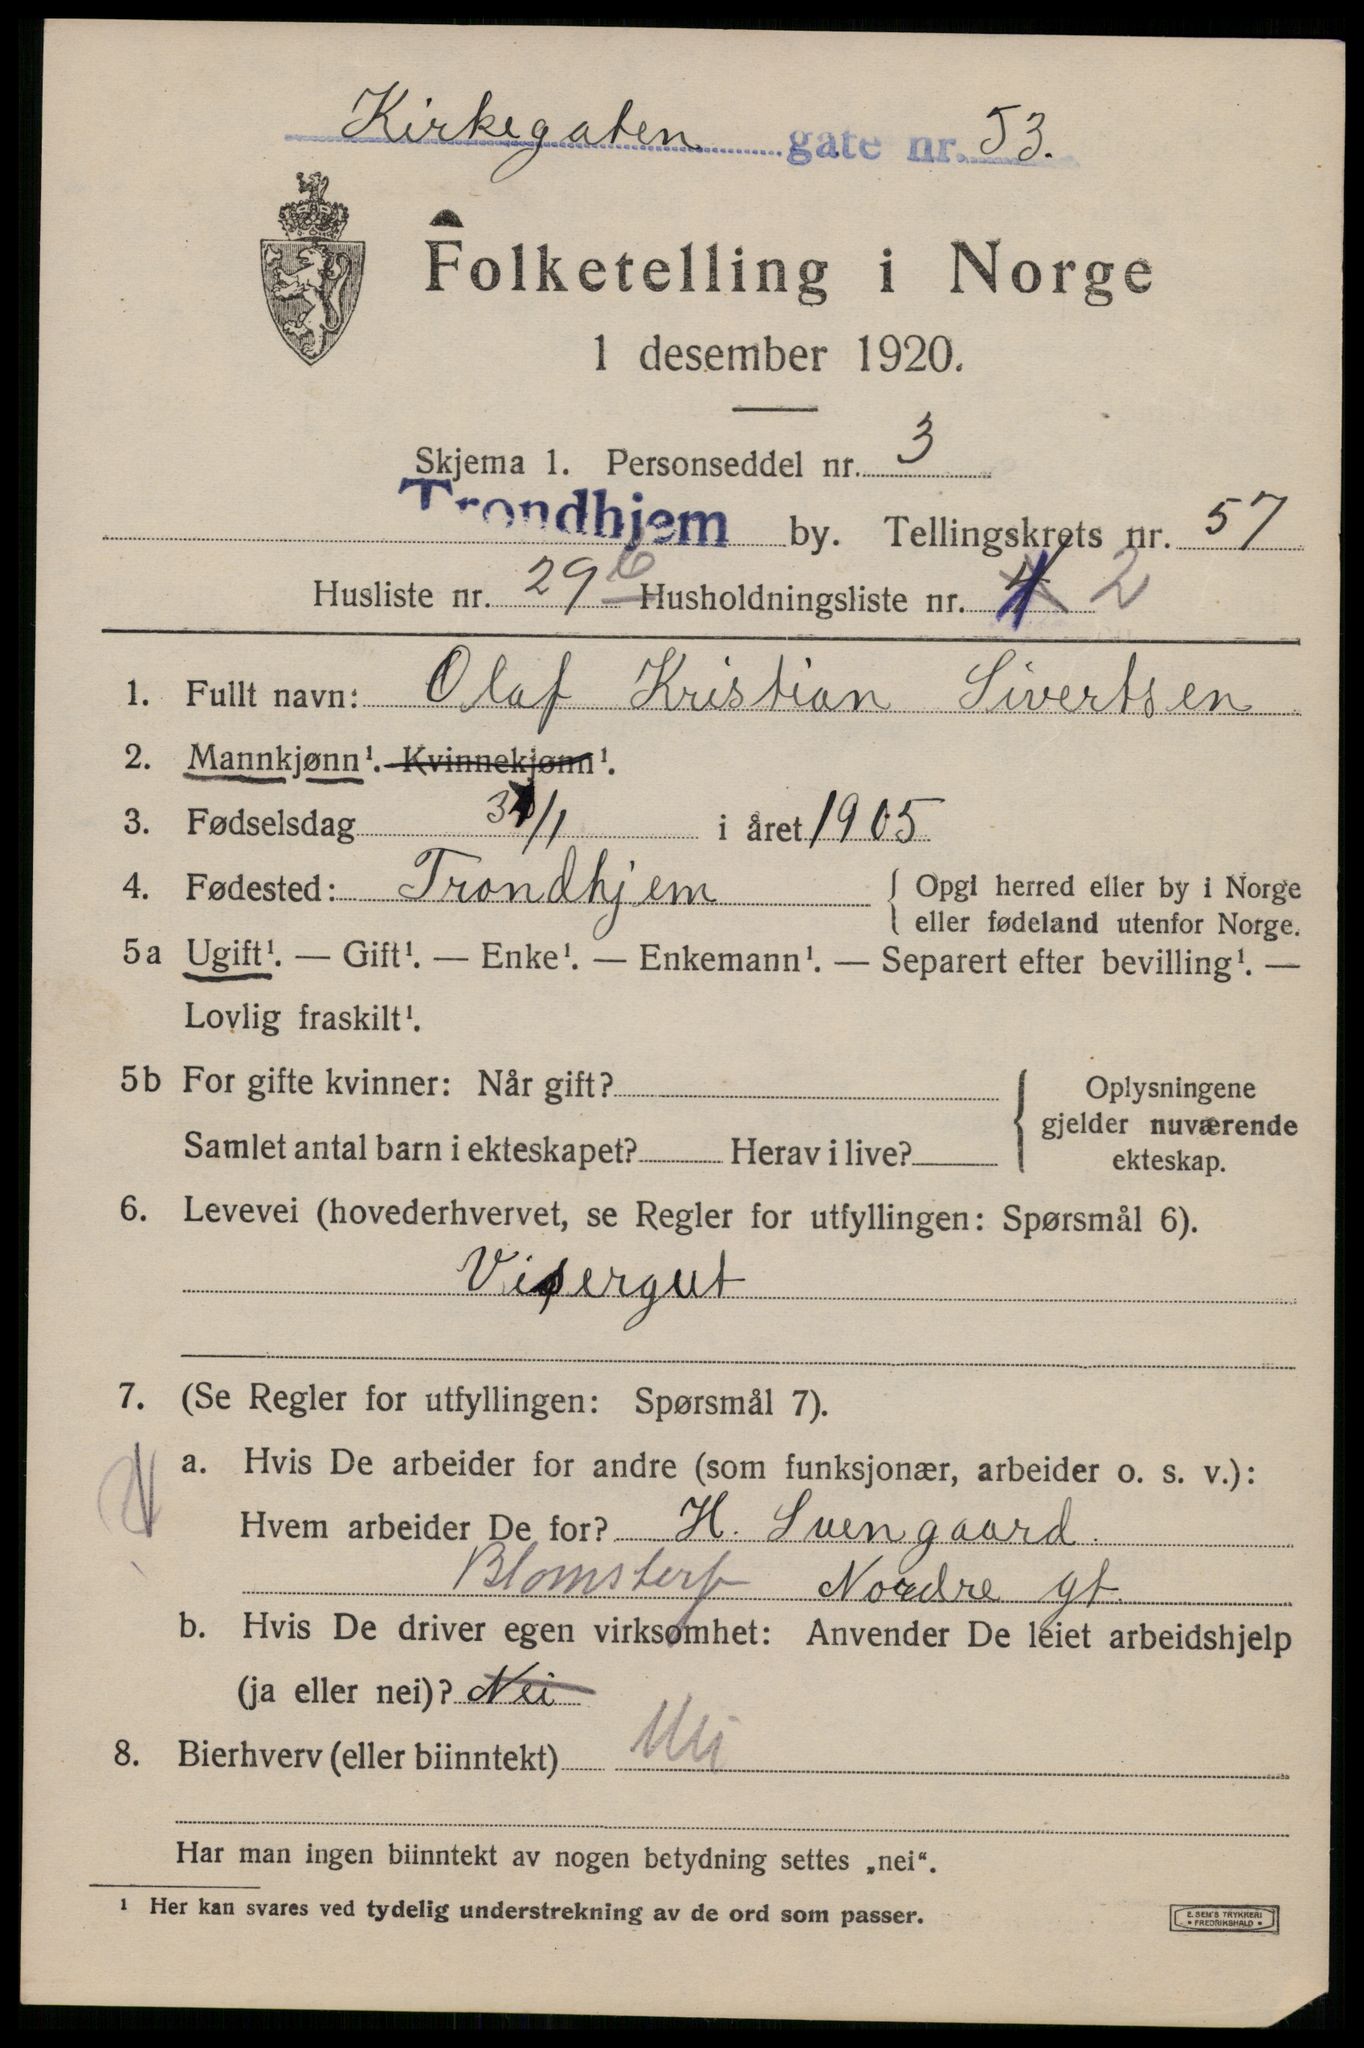 Kirkegaten gate nr. 53.
Folketelling i Norge
1 desember 1920.
Skjema 1. Personseddel nr. 3
Trondhjem by. Tellingskrets nr. 57
Husliste nr. 29 Husholdningsliste nr. 2
1. Fullt navn: Olaf Kristian Sivertsen
2. Mannkjønn¹. Kvinnekjønn¹.
3. Fødselsdag /1 i året 1905
4. Fødested: Trondhjem { Opgi herred eller by i Norge
eller fødeland utenfor Norge.
5a Ugift¹. — Gift¹. — Enke¹. — Enkemann¹. — Separert efter bevilling¹. —
Lovlig fraskilt¹.
5b For gifte kvinner: Når gift? } Oplysningene
gjelder nuværende
Samlet antal barn i ekteskapet? Herav i live? ekteskap.
6. Levevei (hovederhvervet, se Regler for utfyllingen: Spørsmål 6).
Visergut
7. (Se Regler for utfyllingen: Spørsmål 7).
a. Hvis De arbeider for andre (som funksjonær, arbeider o. s. v.):
Hvem arbeider De for? H. Svengaard.
Blomsterf Nordre gt.
b. Hvis De driver egen virksomhet: Anvender De leiet arbeidshjelp
(ja eller nei)? Nei
8. Bierhverv (eller biinntekt) Nei
Har man ingen biinntekt av nogen betydning settes „nei“.
¹ Her kan svares ved tydelig understrekning av de ord som passer.
E. SEM'S TRYKKERI
• FREDRIKSHALD •